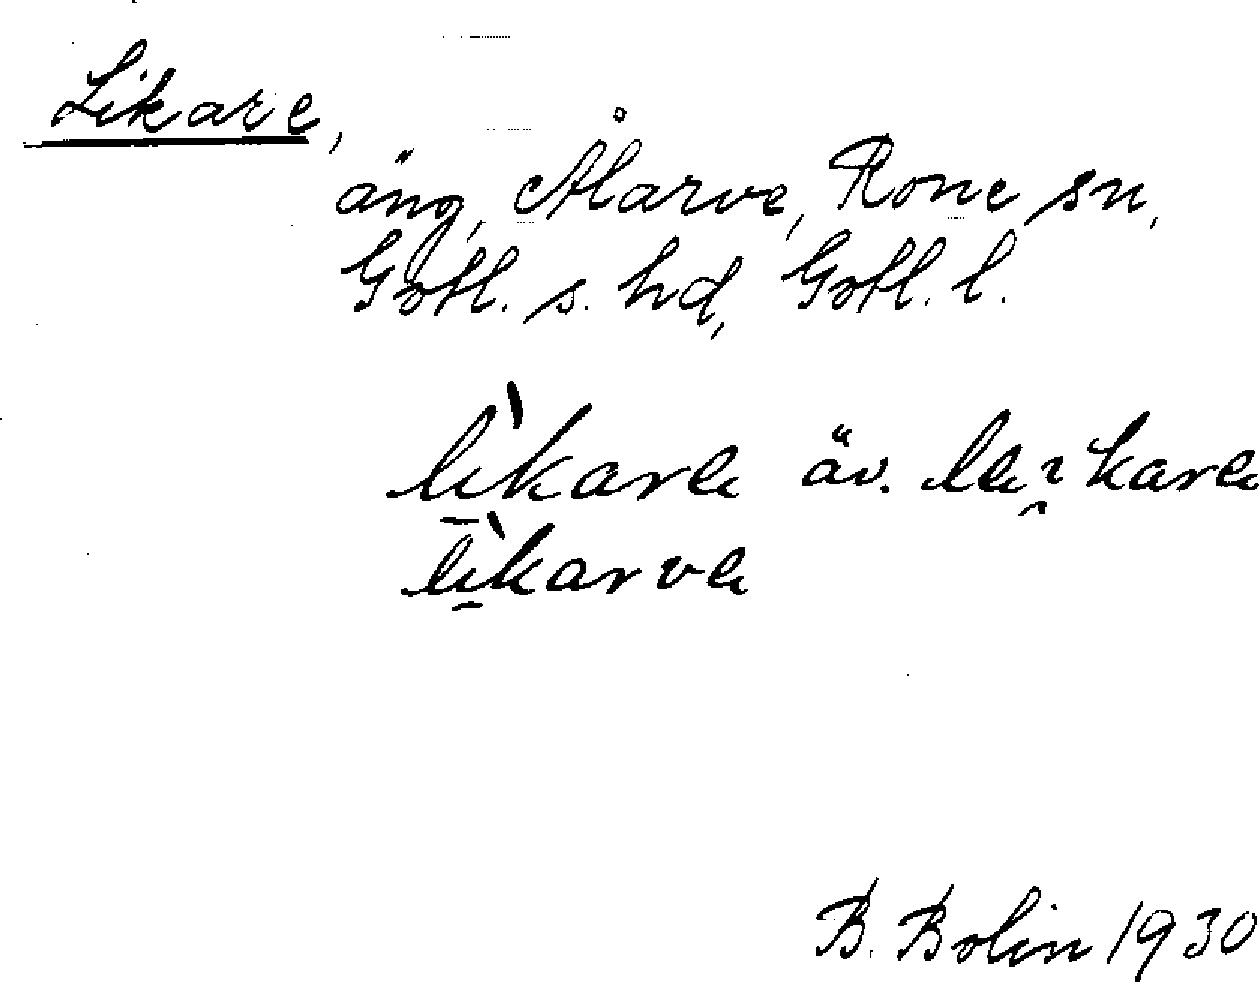 Likare,
äng, Ålarve, Rone sn,
Gotl. s. hd, Gotl. l.
lìkare äv. leikare
lìkarve
B. Bolin 1930